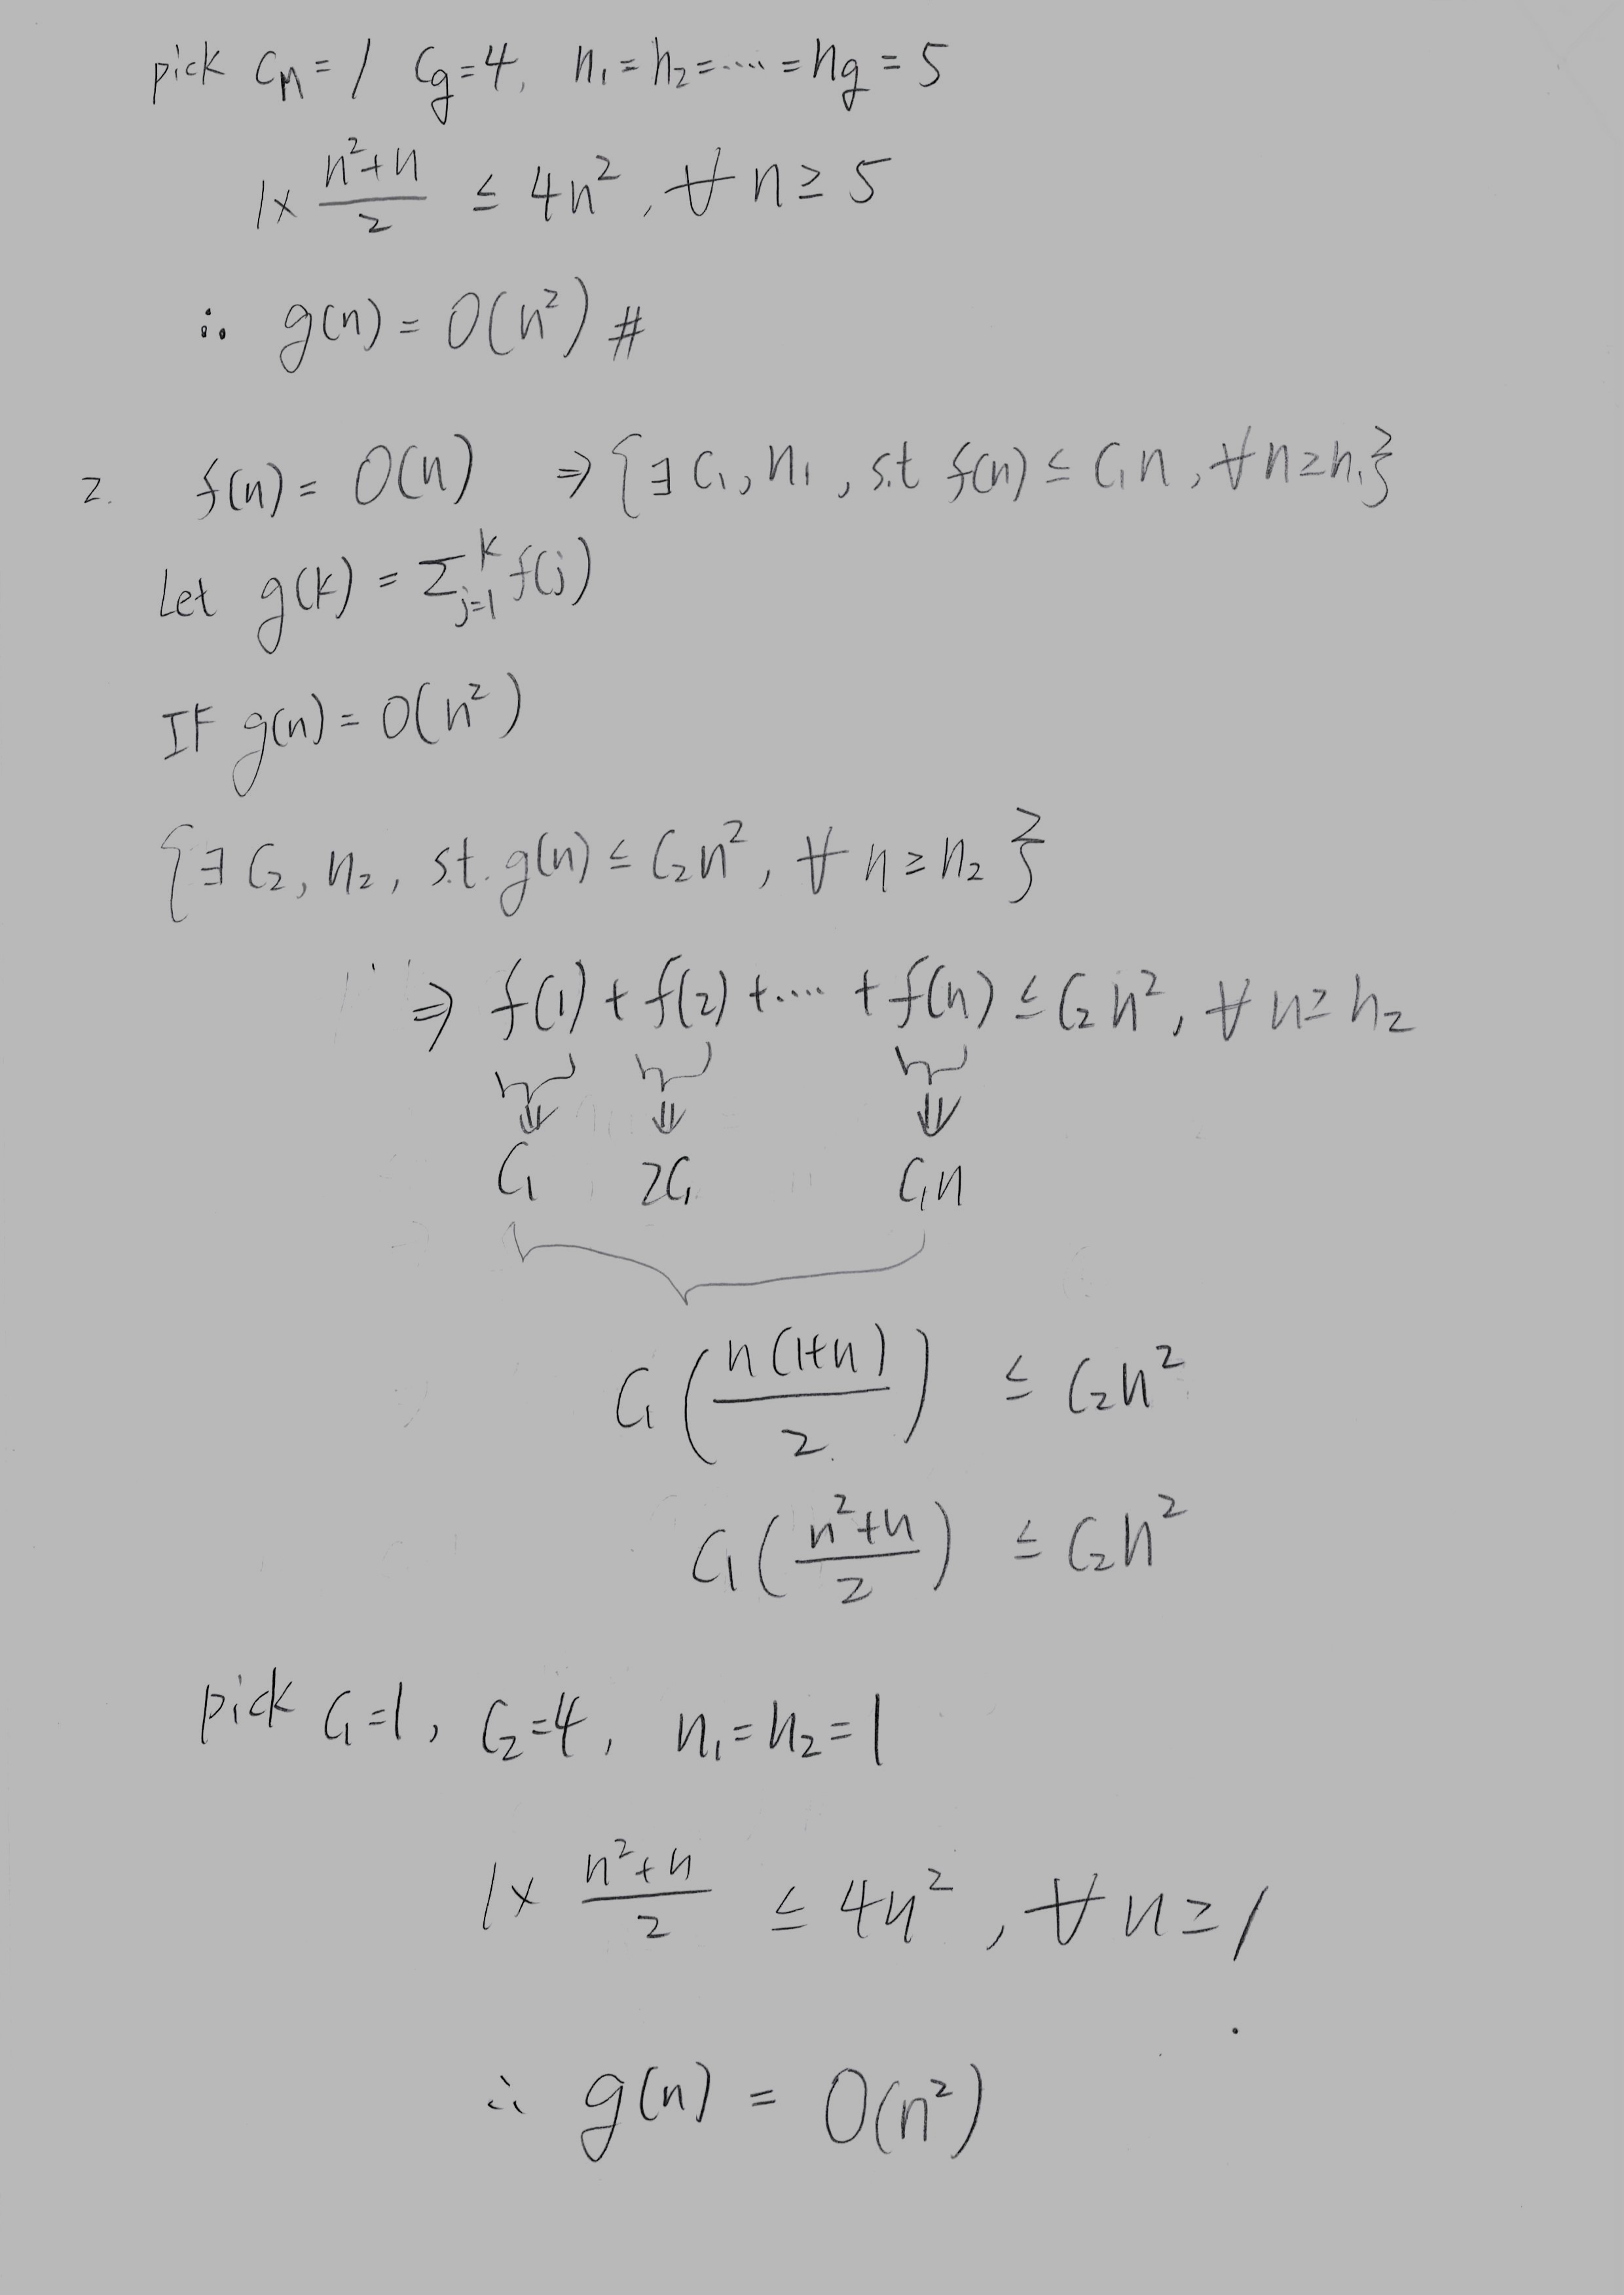 pick Cₙ = 1 C_g = 4, n₁ = n₂ = .... = n_g = 5
1 × (n² + n)/2 ≤ 4n², ∀ n ≥ 5
∴ g(n) = O(n²) #
2. f(n) = O(n) ⇒ {∃ C₁, n₁, s.t f(n) ≤ C₁n, ∀n ≥ n₁}
Let g(k) = Σ_{j=1}^{k} f(j)
If g(n) = O(n²)
{∃ C₂, n₂, s.t. g(n) ≤ C₂n², ∀ n ≥ n₂}
⇒ f(1) + f(2) + .... + f(n) ≤ C₂n², ∀ n ≥ n₂
⇓ ⇓ ⇓
C₁ 2C₁ C₁n
C₁ (n(1+n)/2) ≤ C₂n²
C₁ ((n² + n)/2) ≤ C₂n²
pick C₁ = 1, C₂ = 4, n₁ = n₂ = 1
1 × (n² + n)/2 ≤ 4n², ∀ n ≥ 1
∴ g(n) = O(n²)